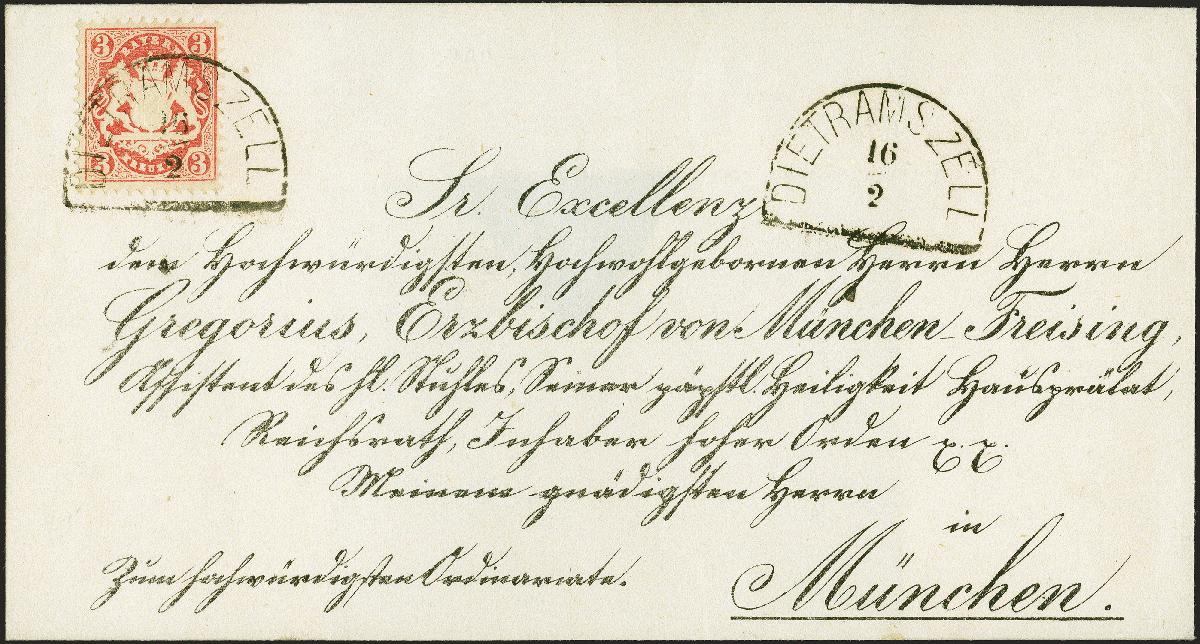 3 BAYERN 3
3 KREUZER 3
DIETRAMSZELL
16
2
DIETRAMSZELL
16
2
Sr. Excellenz
dem Hochwürdigsten, Hochwohlgebornen Herrn Herrn
Gregorius, Erzbischof von München-Freising,
Assistent des hl. Stuhles, Seiner päpstl. Heiligkeit Hausprälat,
Reichsrath, Inhaber hoher Orden x. x.
Meinem gnädigsten Herrn
in
Zum hochwürdigsten Ordinariate.
München.